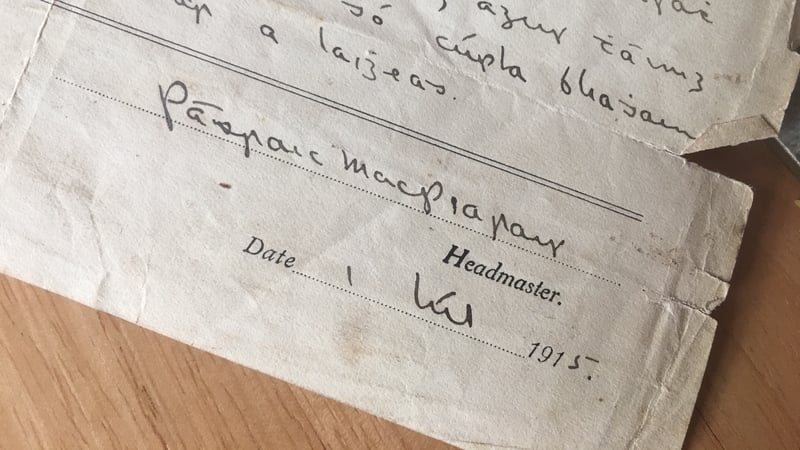 , agus táinig
só cúpla bliaḋain
a laiġeas.
Pádraic MacPiarais
Headmaster.
Date 1 Iúl 1915.